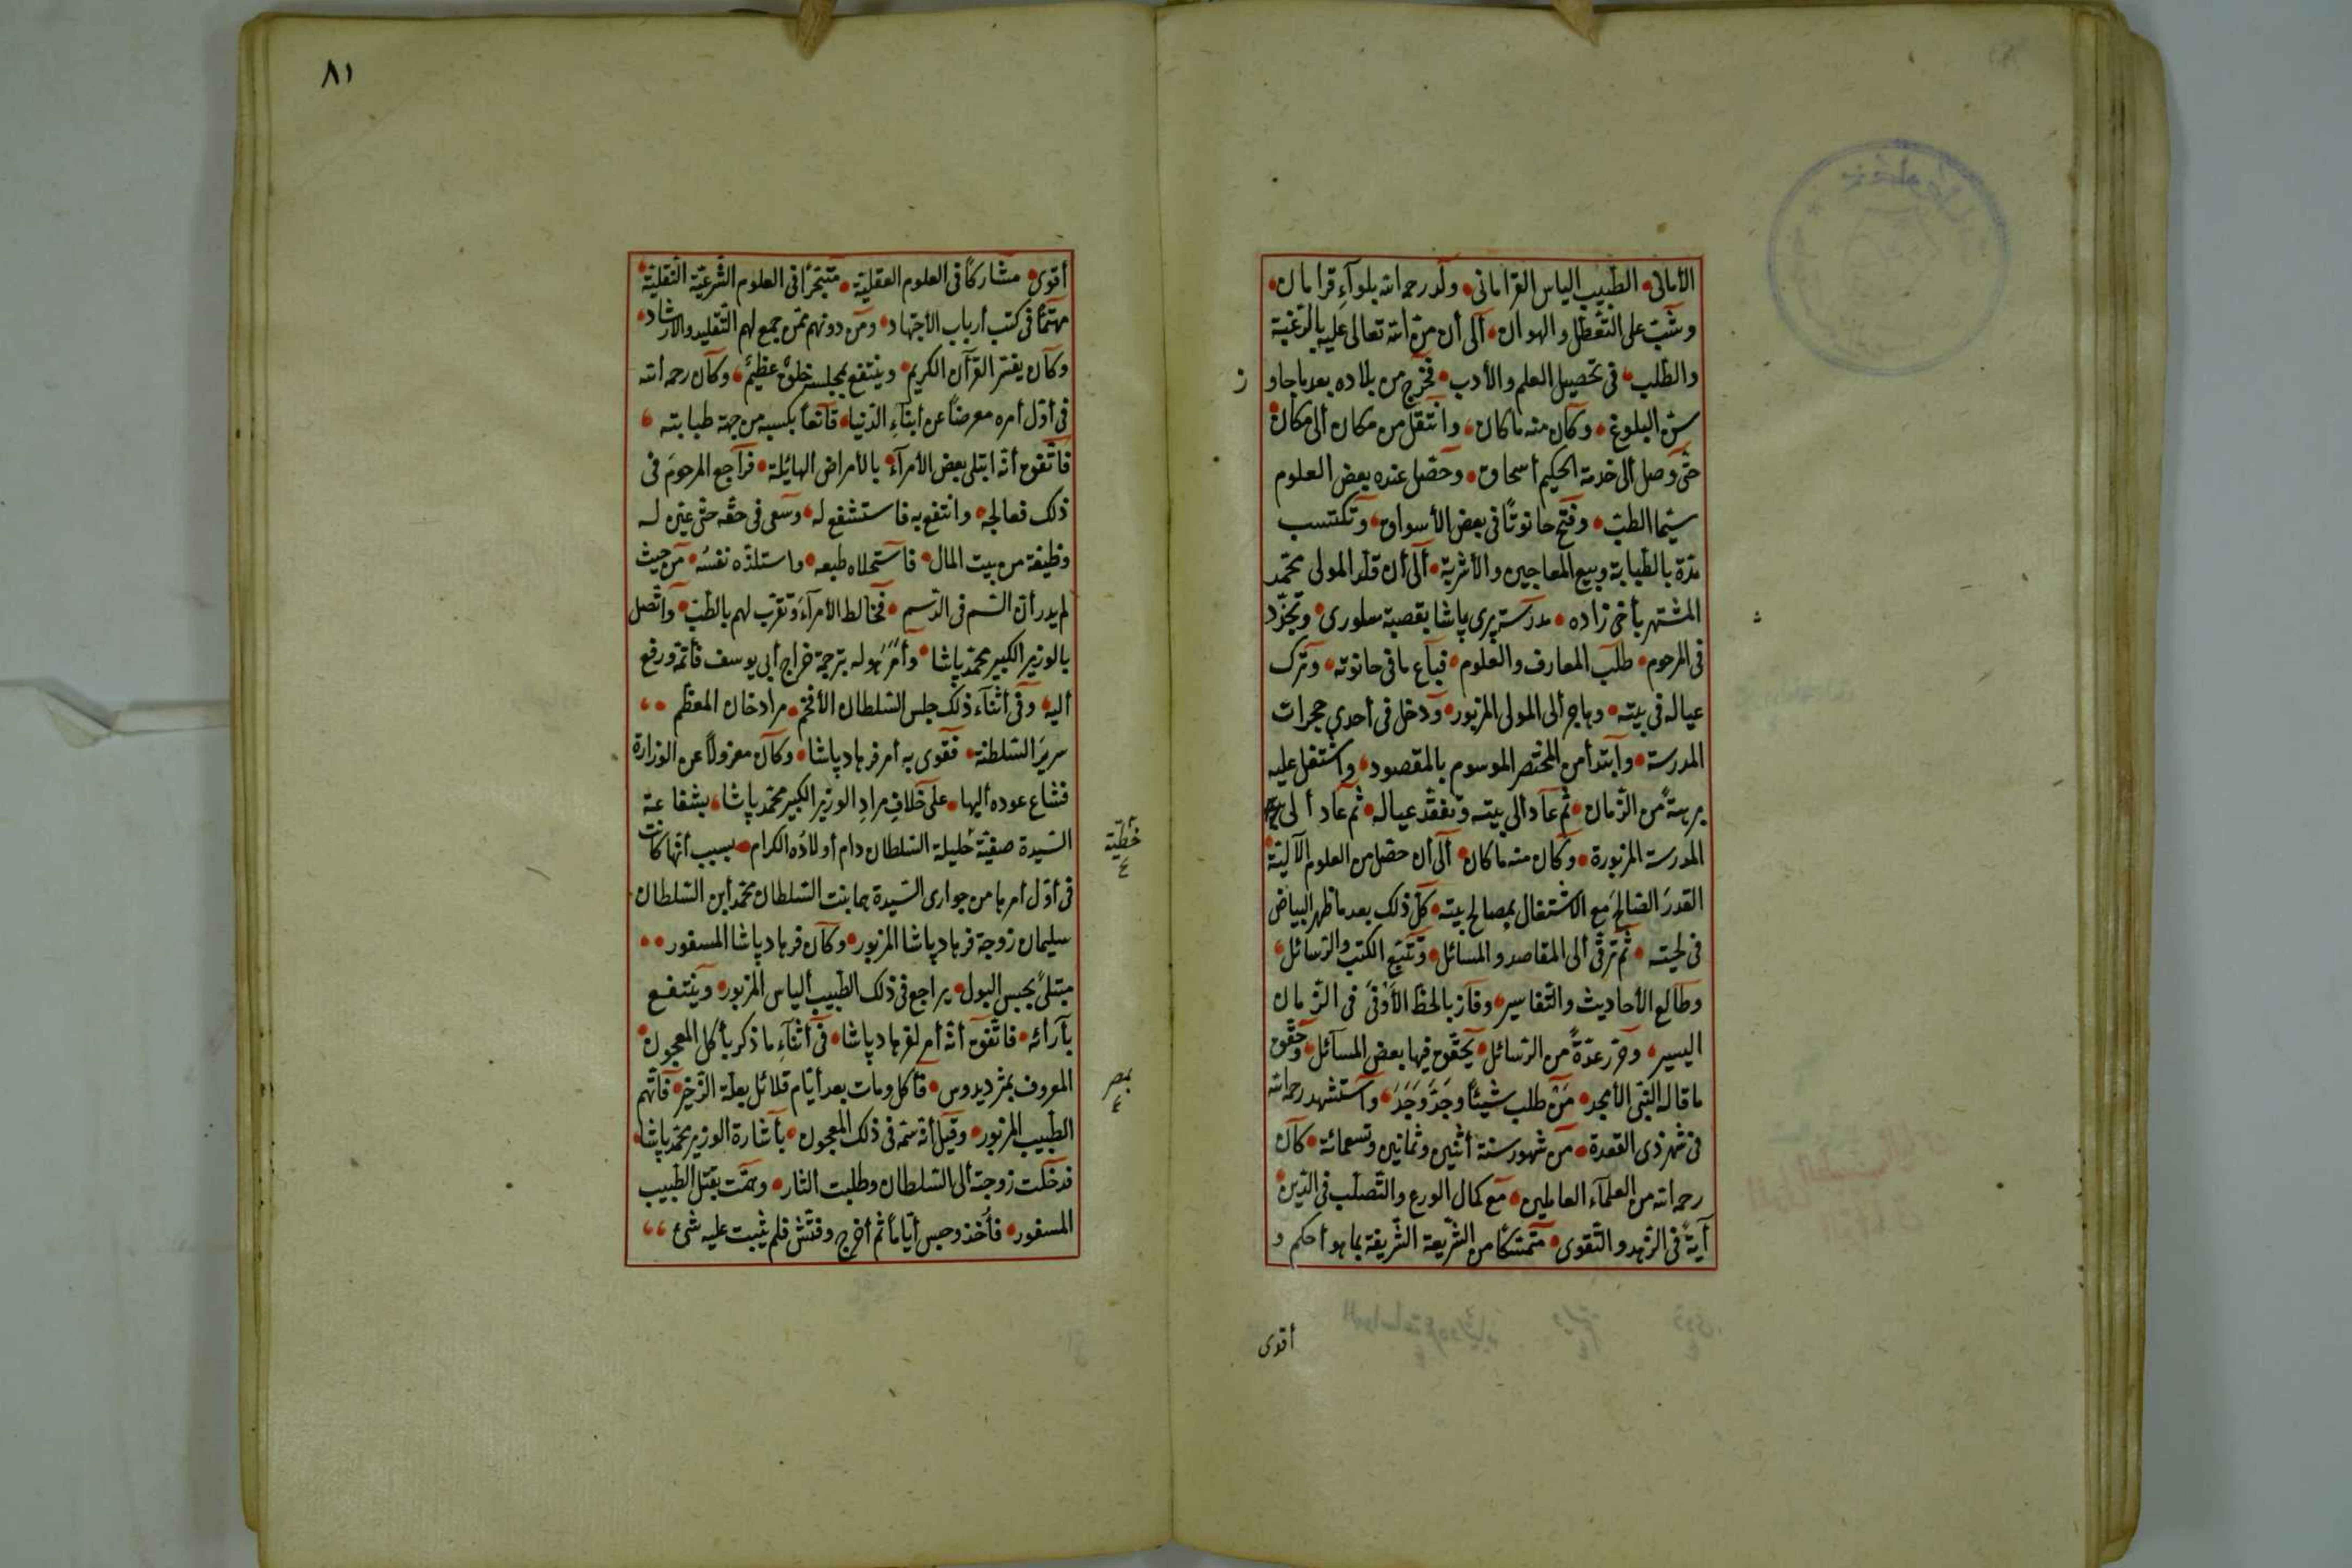 الأمالى الطبيب الياس القرامانى ولد رحمه الله بلوآء قرامان
وشب على التعطل والهوان ألى أن من الله تعالى عليه بالرغبة
والطلب فى تحصيل العلم والأدب فخرج من بلاده بعد ما جاو
ز
سن البلوغ وكان منه ما كان وانتقل من مكان ألى مكان
حتى وصل ألى خدمة الحكيم أسحاق وحصل عنده بعض العلوم
سيما الطب وفتح حانوتًا فى بعض الأسواق وتكتسب
مدة بالطبابة وبيع المعاجين والأشربة ألى أن قلد المولى محمد
المشتهر بأخى زاده مدرسة پرى پاشا بقصبة سلورى وتجرد
فى المرحوم طلب المعارف والعلوم فباع ما فى حانوته وترك
عياله فى بيته وهاجر ألى المولى المزبور ودخل فى أحدى حجرات
المدرسة وابتدأ من المختصر الموسوم بالمقصود واشتغل عليه
برهةً من الزمان ثم عاد ألى بيته وتفقد عياله ثم عاد ألى
المدرسة المزبورة وكان منه ما كان ألى أن حصل من العلوم الآلية
القدر الصالح مع الاشتغال بمصالح بيته كل ذلك بعد ما ظهر البياض
فى لحيته ثم ترقى ألى المقاصد والمسائل وتتبع الكتب والرسائل
وطالع الأحاديث والتفاسير وفاز بالحظ الأوفى فى الزمان
اليسير وحرر عدةً من الرسائل يحقق فيها بعض المسآئل وحقق
ما قاله النبى الأمجد مَن طلب شيئًا وجَدَّ وَجَدَ وآستشهد رحمه الله
فى شهر ذى القعدة من شهور سنة أثنين وثمانين وتسعمائة كان
رحمه الله من العلمآء العاملين مع كمال الورع والتصلب فى الدين
آيةً فى الزهد والتقوى متمسكًا من الشريعة الشريفة بما هو أحكم و
أقوى
٨١
أقوى مشاركًا فى العلوم العقلية متبحرًا فى العلوم الشرعية النقلية
مهتمًا فى كتب أرباب الأجتهاد ومن دونهم ممن جمع لهم التقليد والارشاد
وكان يفسر القرآن الكريم وينتفع بمجلسه خلق عظيم وكان رحمه الله
فى أول أمره معرضًا عن أبنآء الدنيا قانعًا بكسبه من جهة طبابته
فاتفق أنه ابتلى بعض الأمرآء بالأمراض الهائلة فراجع المرحوم فى
ذلك فعالجه وانتفع به فاستشفع له وسعى فى حقه حتى عين له
وظيفة من بيت المال فاستحلاه طبعه واستلذه نفسه من حيث
لم يدر أن السم فى الدسم فخالط الأمرآء وتقرب لهم بالطب واتصل
بالوزير الكبير محمد پاشا وأمر هو له بترجمة خراج أبى يوسف فأتمه ورفع
أليه وفى أثنآء ذلك جلس السلطان الأفخم مراد خان المعظم
سرير السلطنة فقوى به أمر فرهاد پاشا وكان معزولًا عن الوزارة
فشاع عوده أليها على خلاف مراد الوزير الكبير محمد پاشا بشفاعة
السيدة صفية خليلة السلطان دام أولاده الكرام بسبب أنها كانت
خطية
ع
فى أول أمرها من جوارى السيدة هما بنت السلطان محمد ابن السلطان
سليمان زوجة فرهاد پاشا المزبور وكان فرهاد پاشا المسفور
مبتلىً بحبس البول يراجع فى ذلك الطبيب ألياس المزبور وينتفع
بآرائه فاتفق أنه أمر لفرهاد پاشا فى أثنآء ما ذكر بأكل المعجون
المعروف بمثرديدوس فأكل ومات بعد أيام قلائل بعلة الزخير فاتهم
بمصر
ع
الطبيب المزبور وقيل أنه سمه فى ذلك المعجون بأشارة الوزير محمد پاشا
فدخلت زوجته ألى السلطان وطلبت الثار وهمت بقتل الطبيب
المسفور فأُخذ وحبس أيامًا ثم أخرج وفتش فلم يثبت عليه شئ